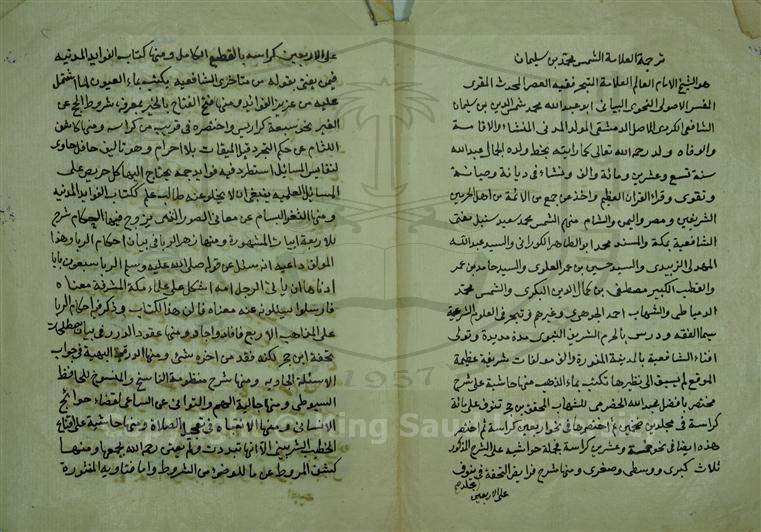 ترجمة العلامة الشمس محمد بن سليمان
هو الشيخ الامام العالم العلامة المتبحر فقيه العصر المحدث المقرى
المفسر الاصولى النحوى البيانى ابو عبد الله محمد شمس الدين بن سليمان
الشافعى الكردى الاصل الدمشقى المولد المدنى المنشاء والاقامة
والوفاه ولد رحمه الله تعالى كما رايته بخط ولده الجمال عبد الله
سنة تسع وعشرين ومائة والف ونشاء فى ديانة وصيانة
وتقوى وقراء القران العظيم واخذ عن جمع من الائمة من اهل الحرمين
الشريفين ومصر واليمن والشام منهم الشمس محمد سعيد سنبل مفتى
الشافعية بمكة والمسند محمد ابو الطاهر الكورانى والسيد عبد الله
المهدلى الزبيدى والسيد حسين بن عمر العلوى والسيد حامد بن عمر
والقطب الكبير مصطفى بن كمال الدين البكرى والشمس محمد
الدمياطى والشهاب احمد الجوهرى وغيرهم وتبحر فى العلوم الشرعية
سيما الفقه ودرس بالحرم الشريف النبوى مدة مديدة وتولى
افتاء الشافعية بالمدينة المنورة والف مولفات شريفة عظيمة
الموقع لم يسبق الى نظيرها تكتب بماء الذهب منها حاشية على شرح
مختصر بافضل عبد الله الحضرمى للشهاب المحقق بن حجر تنوف على مائة
كراسة فى مجلدين ضخمين ثم اختصرها فى نحو اربعين كراسة ثم اختصر
هذه ايضا فى نحو خمسة وعشرين كراسة فجملة حواشيه على الشرح المذكور
ثلاث كبرى ووسطى وصغرى ومنها شرح فرايض التحفة فى مجلد ينوف
على الاربعين
على الاربعين كراسه بالقطع الكامل ومنها كتاب الفوايد المدنيه
فيمن يفتى بقوله من متاخرى الشافعيه يكتب بماء العيون لما اشتمل
عليه من عزيز الفوائد ومنها فتح الفتاح بالخير بمعرفة شروط الحج عن
الغير نحو سبعة كراريس واختصره فى قريب من كراسه ومنها كاشف
اللثام عن حكم التجرد قبل الميقات بلا احرام وهو تاليف حافل حاوى
لنفايس المسايل استطرد فيه فوايد جمه يحتاج اليها كل حريص على
المسائل العلميه ينبغى ان لا يخلو عنه طالب علم ككتاب الفوايد المدنيه
ومنها الثغر البسام عن معانى الصور التى يزوج فيها الحكام شرح
للاربعة ابيات المشهورة ومنها زهر الربا فى بيان احكام الربا وهذا
المولف داعيه انه سئل عن قوله صلى الله عليه وسلم الربا سبعون بابا
ادناها ان ياتى الرجل امه اشكل على علماء مكة المشرفة معناه
فارسلوا يسئلونه عنه معناه فالف هذا الكتاب وذكر فيه احكام الربا
على المذاهب الاربع فافاد واجاد ومنها عقود الدرر فى بيان مصطلحات
تحفة ابن حجر لكنه فقد من اخره شئ ومنها الدرة البهية فى جواب
الاسئلة الجاويه ومنها شرح منظومة الناسخ والمنسوخ للحافظ
السيوطى ومنها جالية الهم والتوانى عن الساعى لقضاء حوائج
الانسان ومنها الانتباه فى تعجيل الصلاة ومنها حاشية على اقناع
الخطيب الشربينى الا انها تبددت ولم يعتن رحمه الله بجمعها ومنها
كشف المروط عن ما للوضوء من الشروط واما فتاويه المنثورة
1957
King Sau